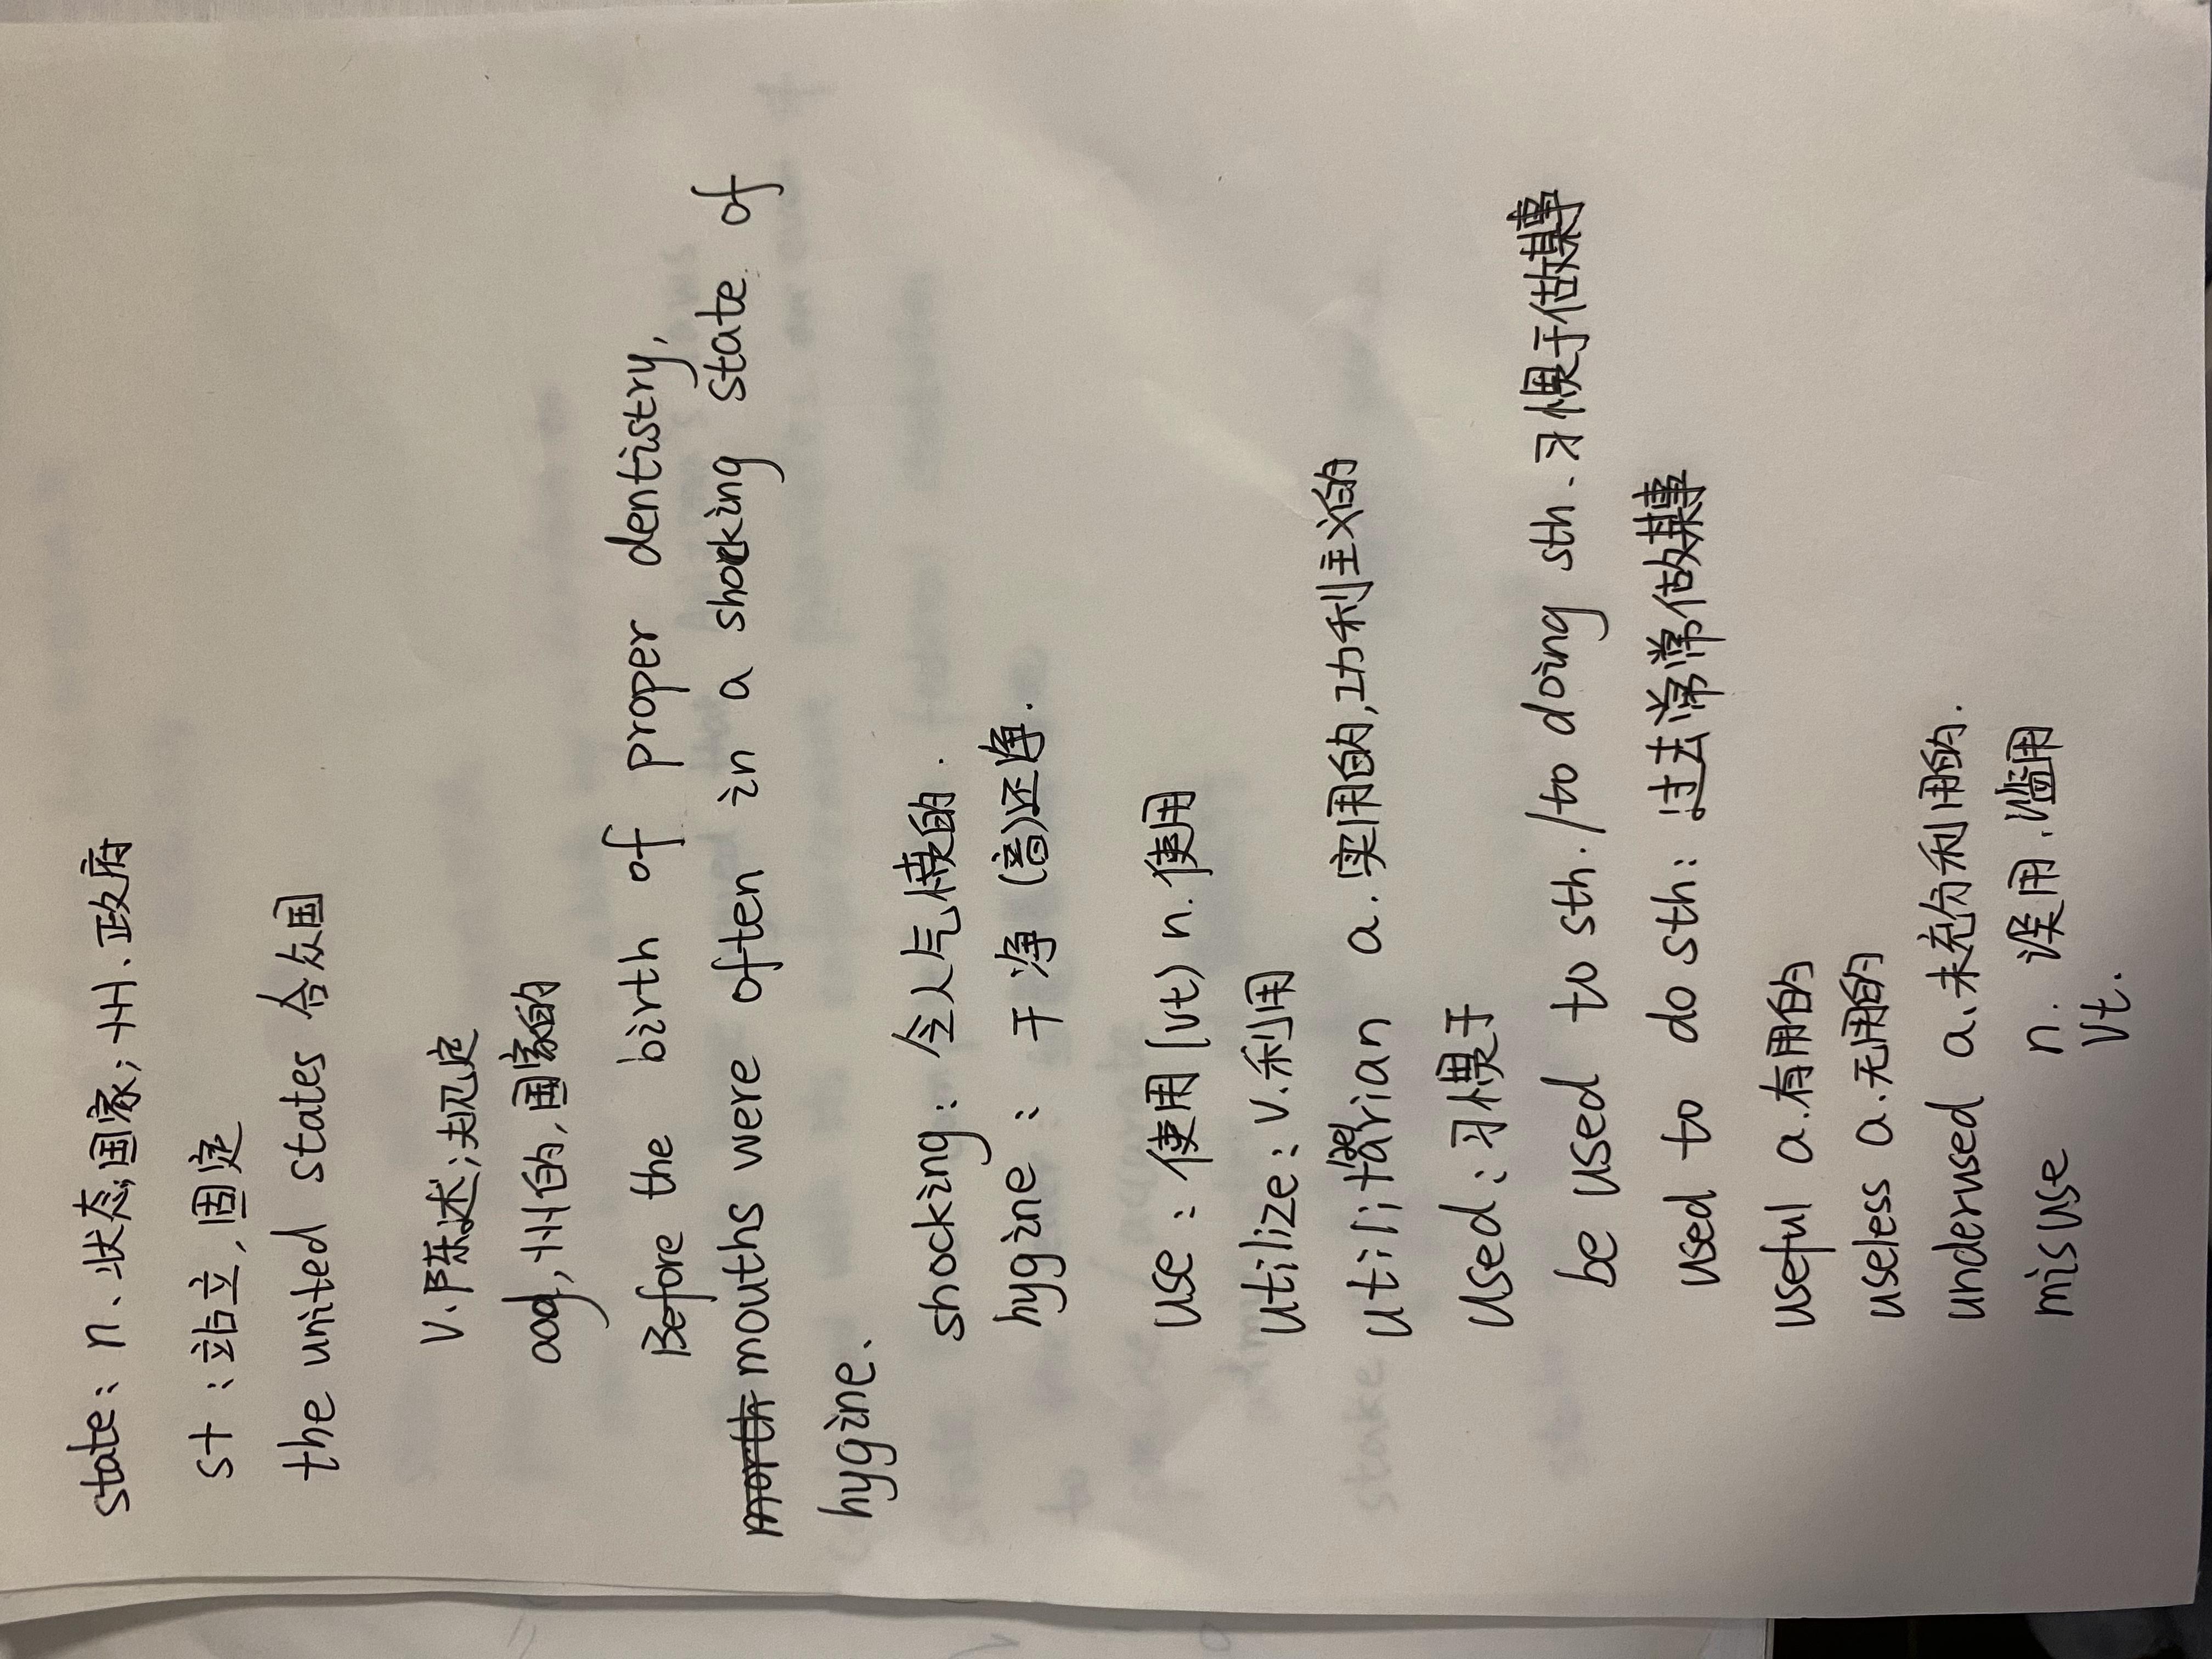 state: n、状态;国家;州、政府
st:站立,固定
the united states 合众国
V、陈述;规定
aog,州的,国家的
Before the birth of proper dentistry,
morth mouths were often in a shocking state of
hygine、
shocking: 令人气愤的.
hygine: 干净 (音)还净.
use: 使用 (vt) n. 使用
utilize: v.利用
utilitarian a. 实用的,功利主义的
used: 习惯于
be used to sth./to doing sth.习惯于做某事
used to do sth: 过去常常做某事
useful a.有用的
useless a.无用的
underused a、未充分利用的.
misuse n. 误用、滥用
Vt.